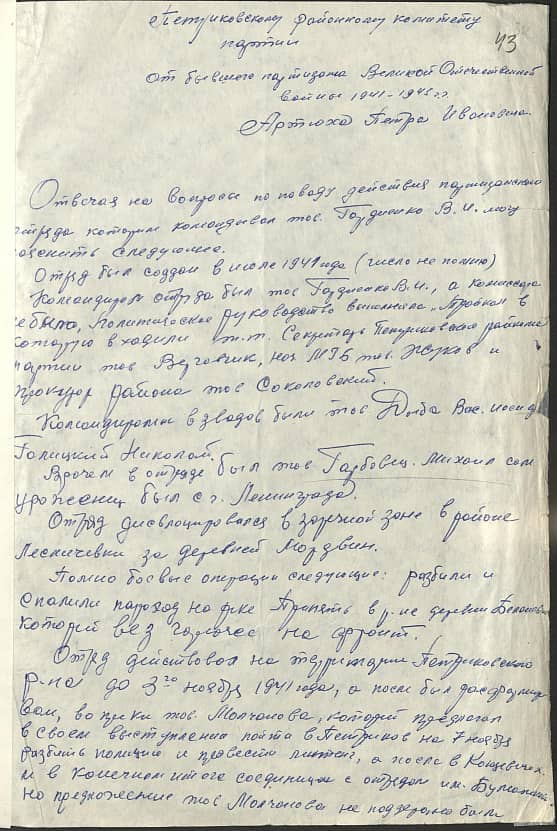 Петриковскому районному комитету
партии
43
От бывшего партизана Великой Отечественной
войны 1941-1945 гг
Артюха Петра Ивановича.
Отвечая на вопросы по поводу действия партизанского
отряда которым командовал тов. Гордиенко В.И. могу
следующее.
Отряд был создан в июле 1941 года (число не помню)
Командиром отряда был тов Гордиенко В.И., а комиссара
не было, политическое руководство выполняла „тройка" в
которую входили т.т. Секретарь Петриковского
партии тов Верговчик, нач МГБ тов. Жуков и
прокурор района тов Соколовский.
Командирами взводов были тов Дыба Вас. и
Голицкий Николай.
Врачем в отряде был тов Гарбовец. Михаил сам
уроженец был с г. Ленинграда.
Отряд дислоцировался в заречной зоне в районе
Лесничевки за деревней Мордвин.
Помню боевые операции следующие: разбили и
спалили пароход на реке Припять в р-не деревни
который вез горючее на фронт.
Отряд действовал на территории Петриковского
р-на до 3го ноября 1941 года, а после был
вопреки тов Молчанова, который предлагал
в своем выступлении пойти в Петриков на 7 ноября
разбить полицию и провести митинг, а после в
и в конечном итоге соединиться с отрядом им.
но предложение тов Молчанова не поддержано было